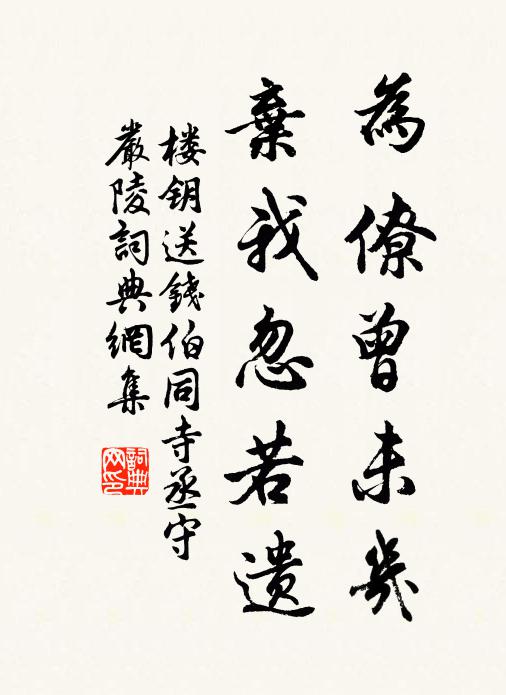 為僚曾未幾
棄我忽若遗
楼钥送錢伯同寺丞守
嚴陵詞典網集
詞典
网印